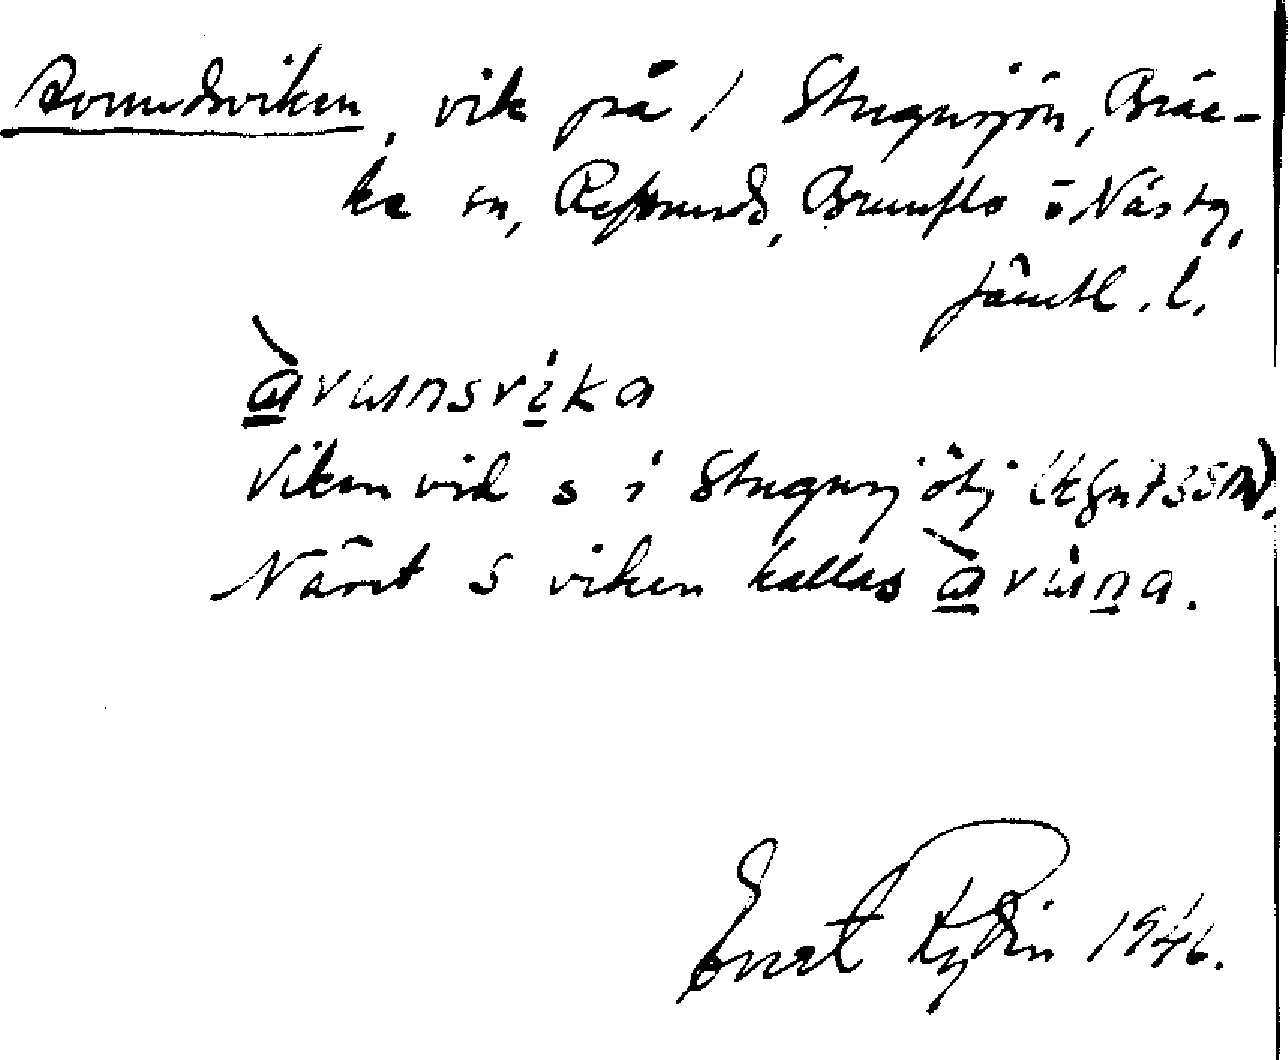 Avundsviken, vik på / Stugusjön, Bräc-
ke sn, Refsunds, Brunflo o Näs tg,
Jämtl. l.
àvunsvika
Viken vid s i Stugusj
Näset S viken kallas àvuna.
Ernst Rydin 1946.